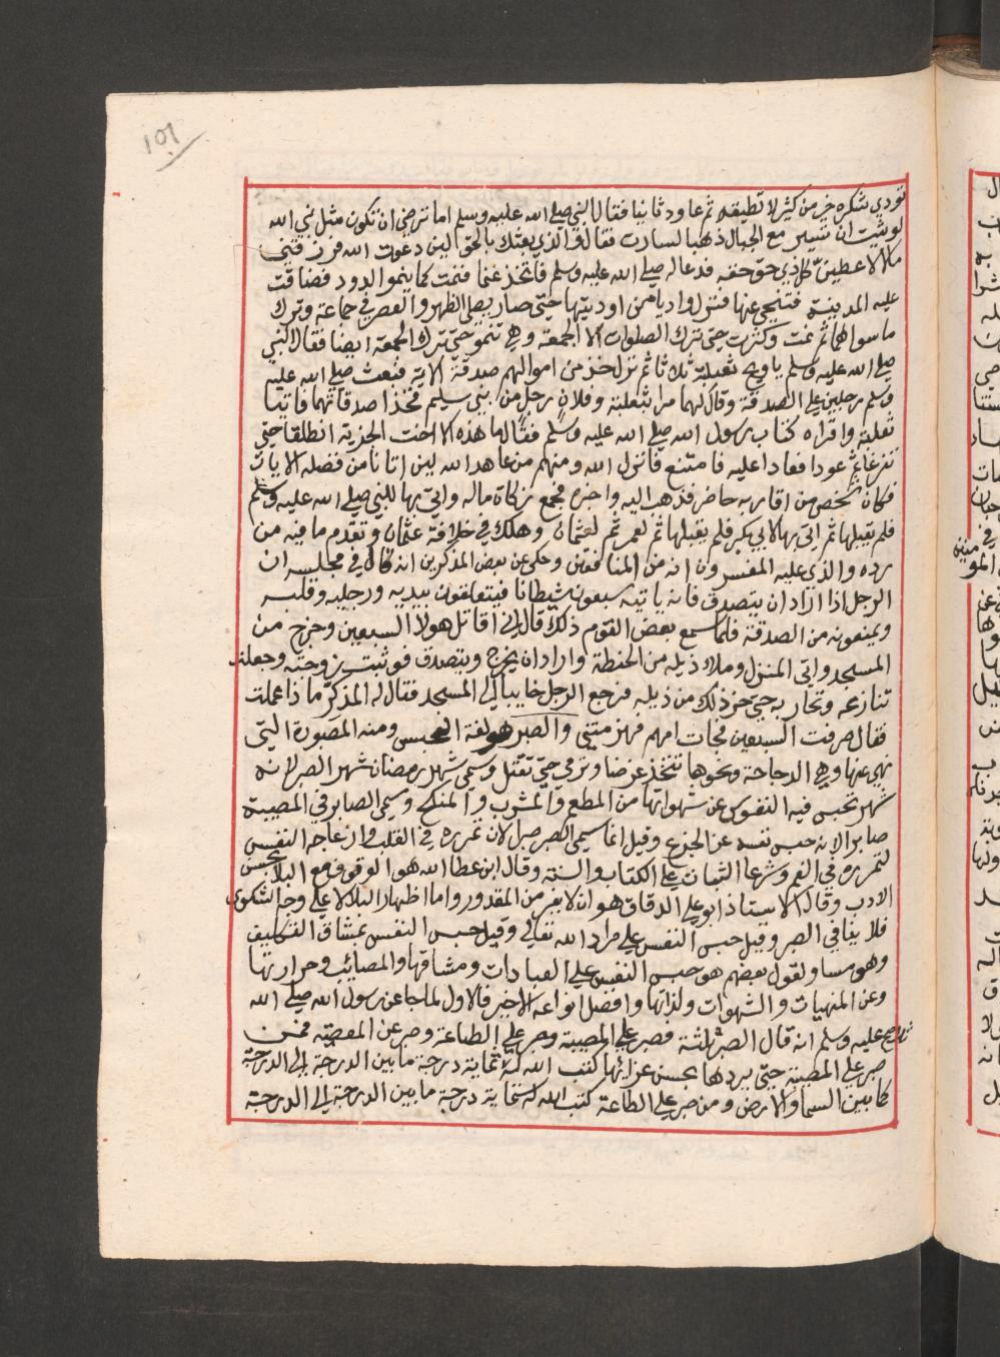 ١٥٦
تودي شكره خير من كثير لا تطيقه ثم عاود ثانيا فقال النبي صلي الله عليه وسلم اما ترضي ان تكون مثل نبي الله
لو شئت ان تسير مع الجبال ذهبا لسارت فقال والذي بعثك بالحق لين دعوت الله فرزقني
مالا لاعطين كل ذي حق حقه فدعا له صلي الله عليه وسلم فاتخذ غنما فنمت كما ينمو الدود فضاقت
عليه المدينة فتنحي عنها فنزل واديا من اوديتها حتي صار يصلي الظهر والعصر في جماعة وترك
ما سواهما ثم نمت وكثرت حتي ترك الصلوات الا الجمعة وهي تنمو حتي ترك الجمعة ايضا فقال النبي
صلي الله عليه وسلم يا ويح ثعلبة ثلاثا ثم نزل خذ من اموالهم صدقة الاية فبعث صلي الله عليه
وسلم رجلين علي الصدقة وقال لهما مرا بثعلبة وفلان رجل من بني سليم فخذا صدقاتهما فاتيا
ثعلبة واقراه كتاب رسول الله صلي الله عليه وسلم فقال ما هذه الا اخت الجزية انطلقا حتي
تفرغا ثم عودا فعادا عليه فامتنع فانزل الله ومنهم من عاهد الله لين اتانا من فضله الايات
فكان شخص من اقاربه حاضر فذهب اليه واخبره فجمع زكاة ماله واتي بها للنبي صلي الله عليه وسلم
فلم يقبلها ثم اتي بها لابي بكر فلم يقبلها ثم لعمر ثم لعثمان وهلك في خلافة عثمان وتقدم ما فيه من
رده والذي عليه المفسرون انه من المنافقين وحكي عن بعض المذكرين انه قال في مجلسه ان
الرجل اذا اراد ان يتصدق فانه ياتيه سبعون شيطانا فيتعلقون بيديه ورجليه وقلبه
ويمنعونه من الصدقة فلما سمع بعض القوم ذلك قال اني اقاتل هولا السبعين وخرج من
المسجد واتي المنزل وملا ذيله من الحنطة واراد ان يخرج ويتصدق فوثبت زوجته وجعلت
تنازعه وتحاربه حتي اخرج ذلك من ذيله فرجع الرجل خايبا الي المسجد فقال له المذكر ما ذا عملت
فقال هزمت السبعين فجات امهم فهزمتني والصبر هو لغة الحبس ومنه المصبورة التي
نهي عنها وهي الدجاجة ونحوها تتخذ غرضا وترمي حتي تقتل وسمي شهر رمضان شهر الصبر لانه
شهر تحبس فيه النفوس عن شهواتها من المطعم والمشرب والمنكح وسمي الصابر في المصيبة
صابرا لانه حبس نفسه عن الجزع وقيل انما سمي الصبر صبرا لان تمرره في القلب وازعاجه النفس
كتمرره في الفم وشرعا الثبات علي الكتاب والسنة وقال ابن عطا الله هو الوقوف مع البلا بحسن
الادب وقال الاستاذ ابو علي الدقاق هو ان لا يعترض المقدور واما اظهار البلا لا علي وجه الشكوي
فلا ينافي الصبر وقيل حبس النفس علي مراد الله تعالي وقيل حبس النفس بمشاق التكليف
وهو مساو لقول بعضهم هو حبس النفس علي العبادات ومشاقها والمصائب وحرارتها
وعن المنهيات والشهوات ولذاتها وافضل انواعه الاخير فالاول لما جا عن رسول الله صلي الله
عليه وسلم انه قال الصبر ثلثة فصبر علي المصيبة وصبر علي الطاعة وصبر عن المعصية فمن
صبر علي المصيبة حتي يردها بحسن عزائها كتب الله له ثلثماية درجة ما بين الدرجة الي الدرجة
كما بين السما والارض ومن صبر علي الطاعة كتب الله له ستماية درجة ما بين الدرجة الي الدرجة